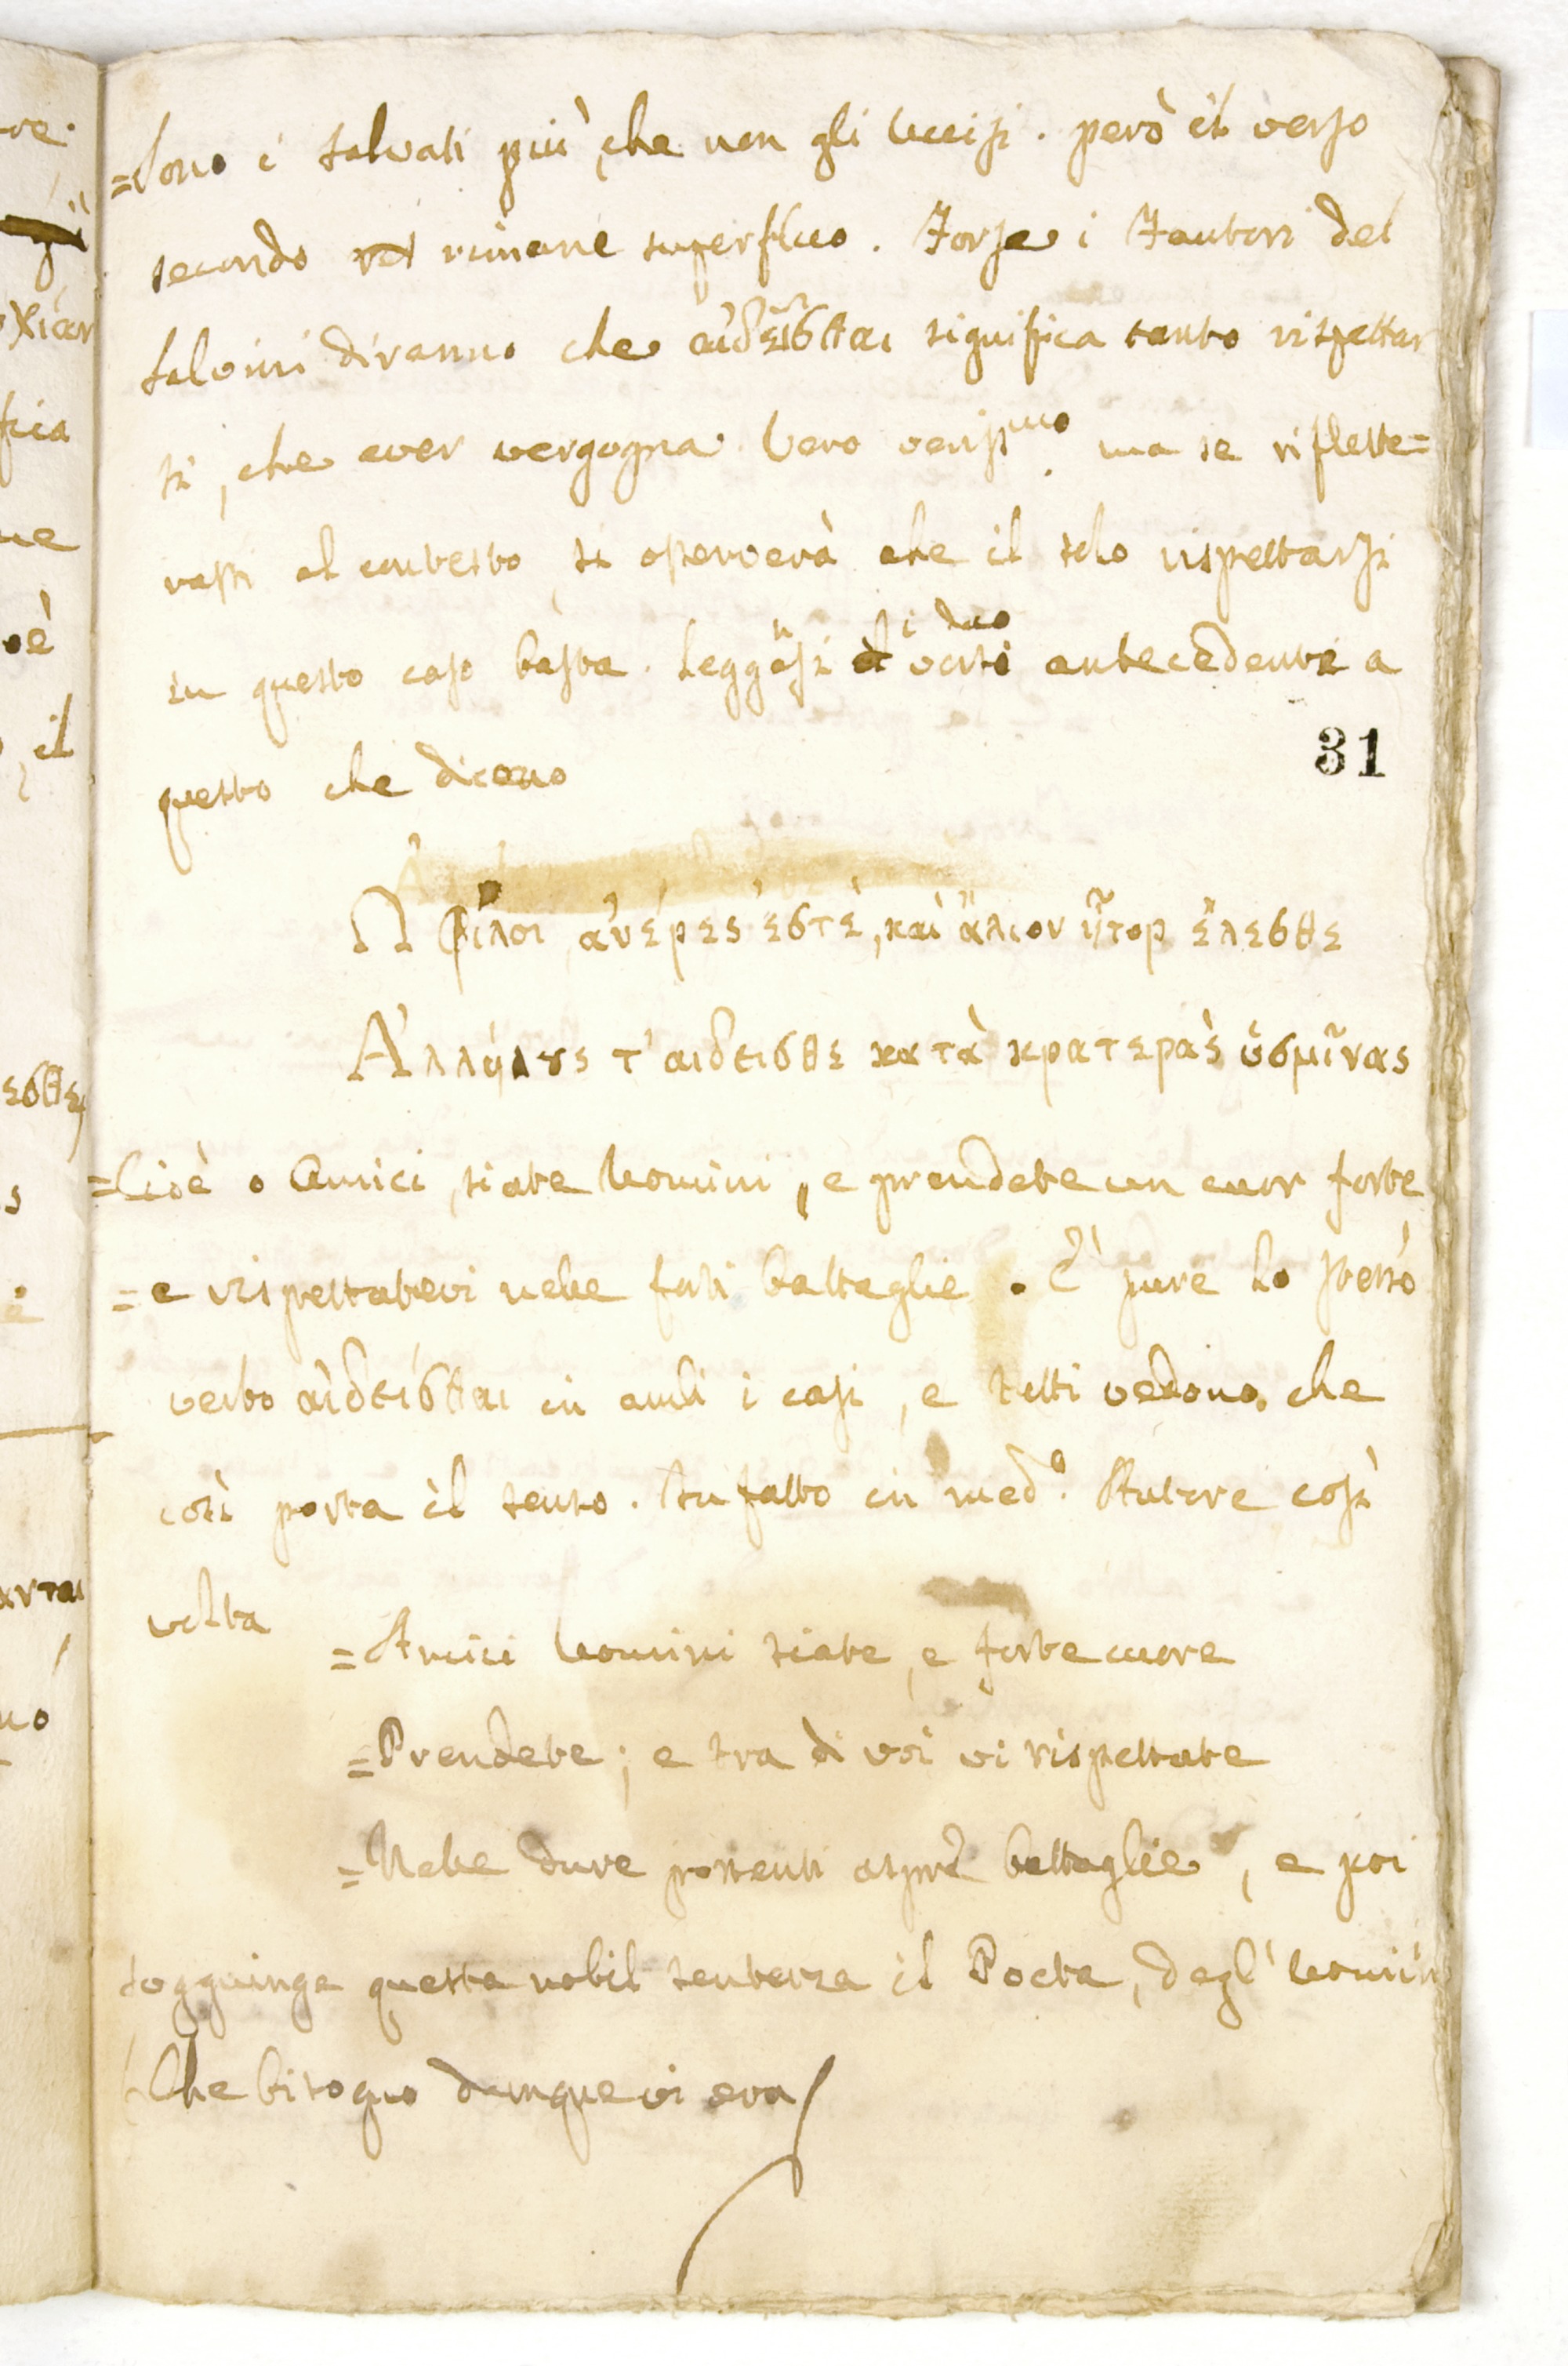 =Sono i salvati più, che non gli Uccisi. però il verso
secondo rimane superfluo. Forse i Fautori del
Salvini diranno che αἰδεῖσθαι significa tanto rispettar
si, che aver vergogna. Vero veriss.mo ma se riflette=
rassi al contesto, si osserverà che il solo rispettarsi
in questo caso basta. Leggansi i duo versi antecedenti a
questo che dicono
31
Ω φίλοι ἀνέρες ἐστὲ, καὶ ἄλκιον ἦτορ ἕλεσθε
Ἀλλήλȣς τ' αιδεισθε κατὰ κρατερὰς ὑσμῖνας
=Cioè o Amici, siate Uomini, e prendete un cuor forte
=e rispettatevi nelle forti battaglie. È pure lo stesso
verbo αἰδεισθαι in ambi i casi, e tutti vedono, che
così porta il senso. Infatto il med.o Autore così
volta
=Amici Uomini siate, e forte cuore
=Prendete; e tra di voi vi rispettate
=Nelle dure possenti aspre battaglie, e poi
soggiunge questa nobil sentenza il Poeta, degl' Uomin
Che bisogno dunque vi era
ve.
χιάν
fica
ne
oè
, il
εσθε,
s
è
ανται
nò